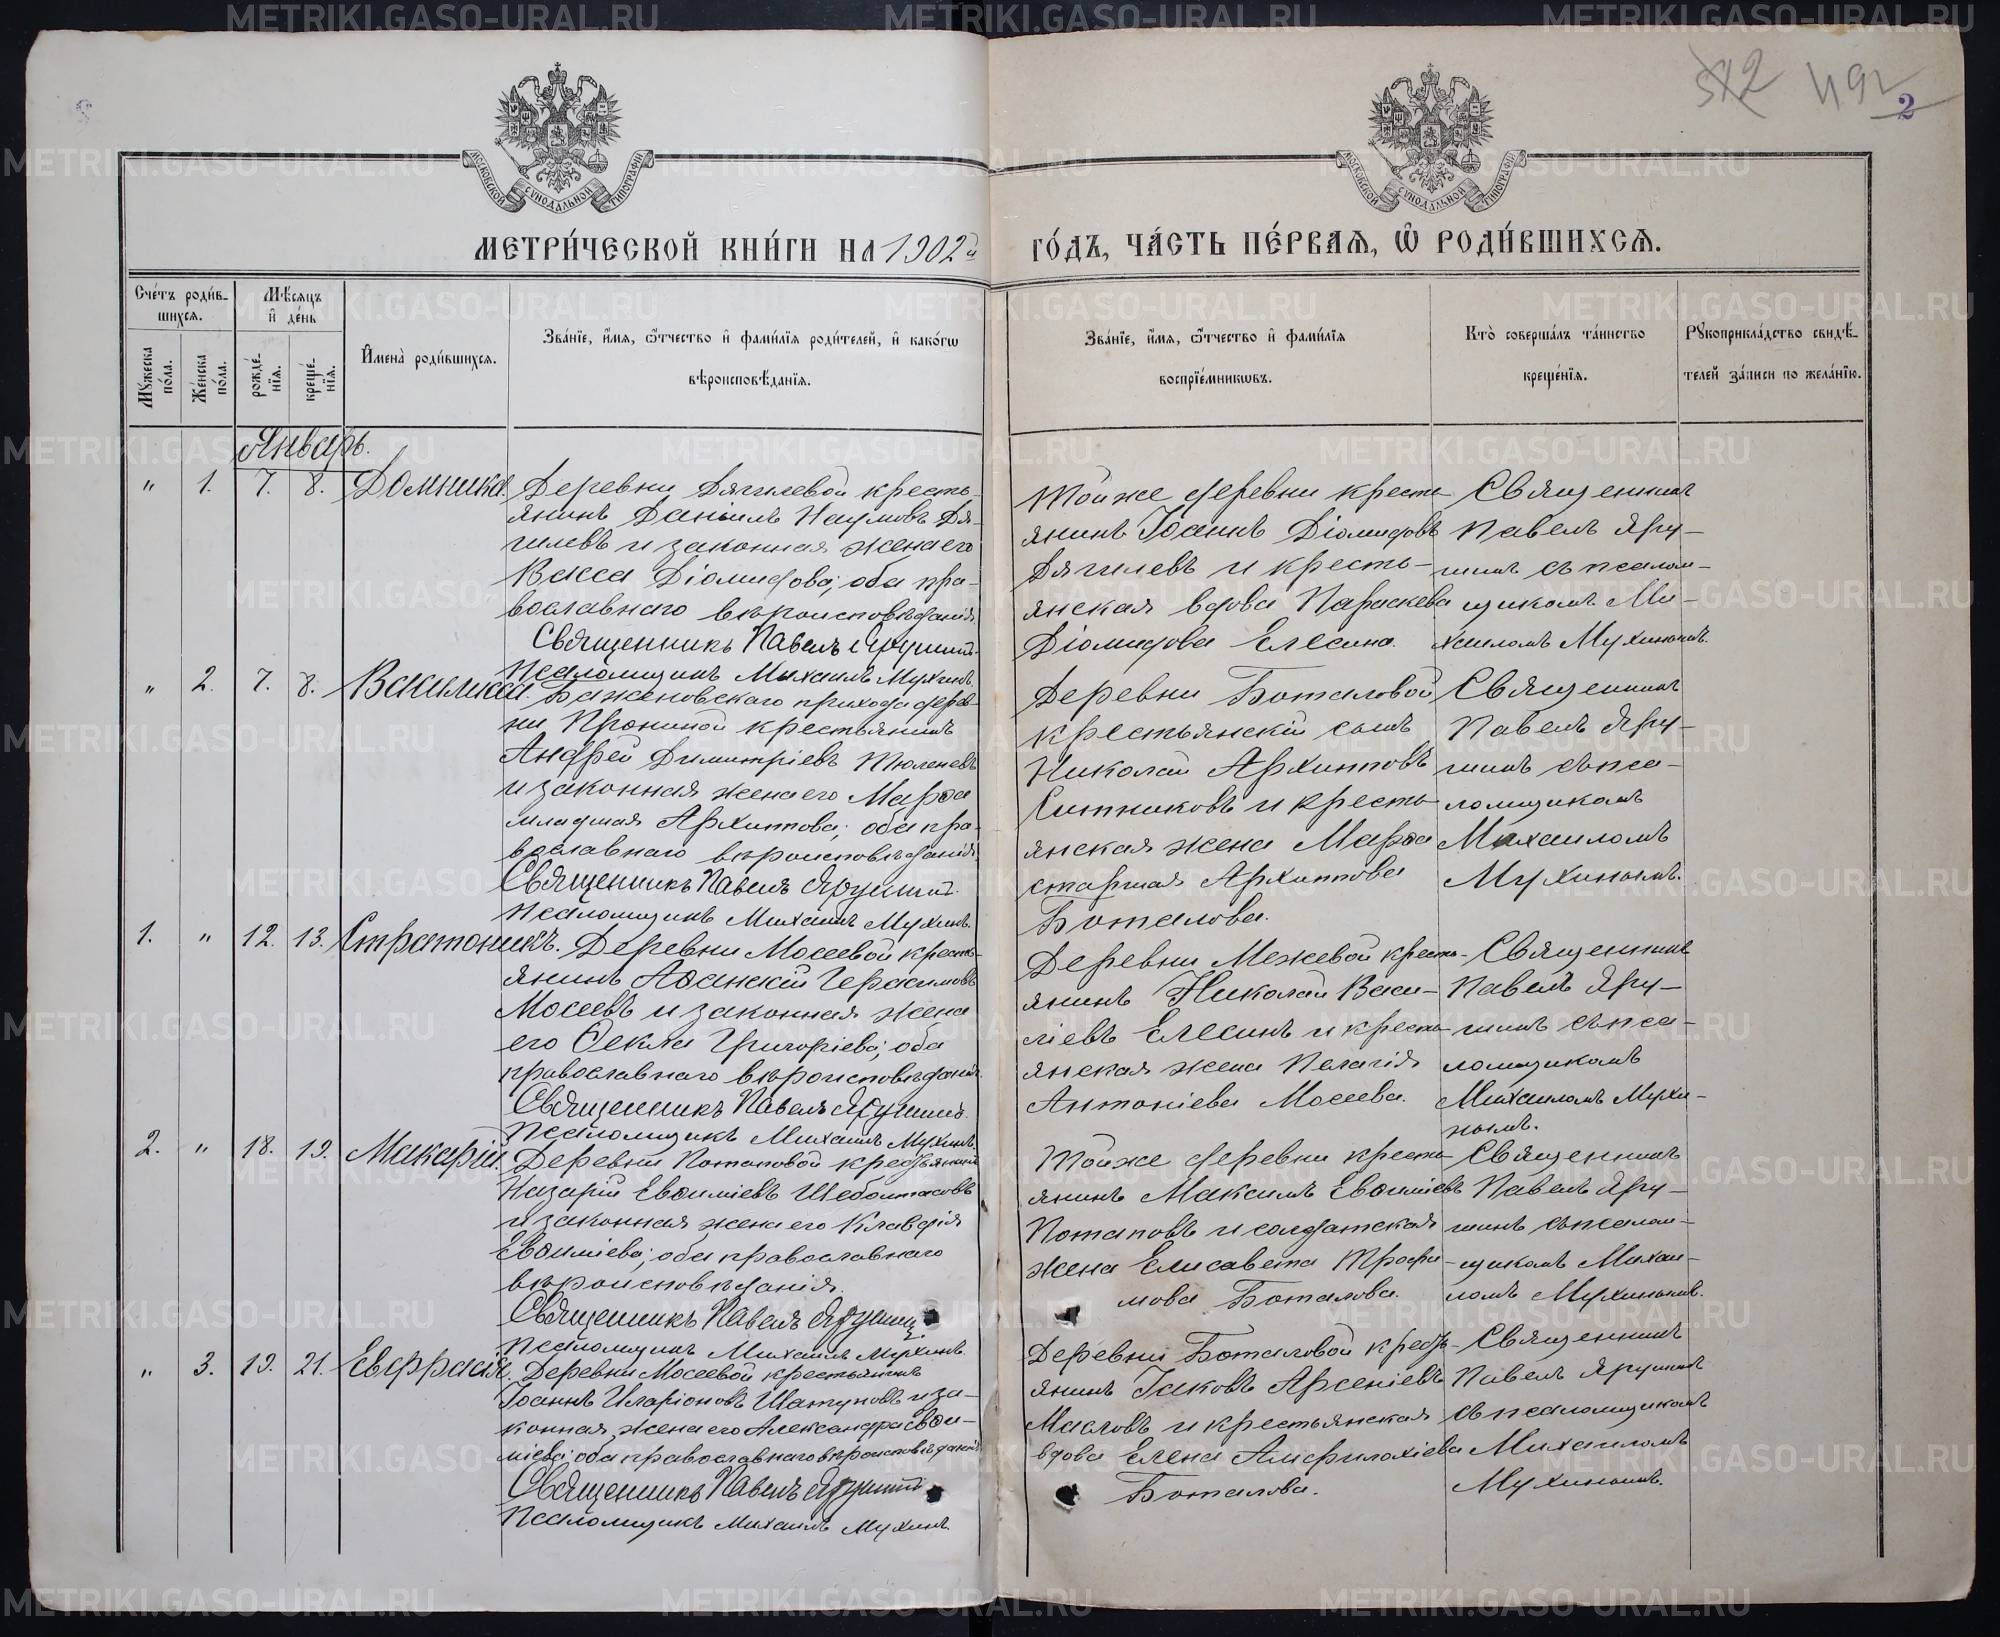 512 492
2
МОСКОВСКОЙ СѴНОДАЛЬНОЙ ТИПОГРАФІИ
МОСКОВСКОЙ СѴНОДАЛЬНОЙ ТИПОГРАФІИ
МЕТРИ́ЧЕСКОЙ КНИ́ГИ НА 1902й
ГО́ДЪ, ЧА́СТЬ ПЕ́РВАЯ, Ѽ РОДИ́ВШИХСЯ.
Сче́тъ роди́в-
шихся.
Мꙋ́жеска по́ла.
Же́нска по́ла.
Мѣ́сяцъ
и҆ де́нь
рожде́-
нїя.
креще́-
нїя.
И҆мена̀ роди́вшихся.
Зва́нїе, и҆́мя, ѻ҆́тчество и҆ фами́лїя роди́телей, и҆ како́гѡ
вѣроисповѣ́данїя.
Зва́нїе, и҆́мя, ѻ҆́тчество и҆ фами́лїя
воспрїе́мникѡвъ.
Кто̀ соверша́лъ та́инство
креще́нїя.
Рꙋкоприкла́дство свидѣ́-
телей за́писи по жела́нїю.
Январь.
" 1. 7. 8. Домника.
Деревни Дягилевой кресть-
янинъ Даніилъ Наумовъ Дя-
гилевъ и законная жена его
Васса Діомидова; оба пра-
вославнаго вѣроисповѣданія
Священникъ Павелъ Ярушинъ.
Псаломщикъ Михаилъ Мухинъ.
Тойже деревни кресть-
янинъ Іоаннъ Діомидовъ
Дягилевъ и кресть-
янская вдова Параскева
Діомидова Елесина.
Священникъ
Павелъ Яру-
шинъ съ псалом-
щикомъ Ми-
хаиломъ Мухинымъ.
" 2. 7. 8. Василисса.
Баженовскаго прихода дерев-
ни Прониной крестьянинъ
Андрей Димитріевъ Тюленевъ
и законная жена его Марѳа
младшая Архиппова; оба пра-
вославнаго вѣроисповѣданія
Священникъ Павелъ Ярушинъ.
Псаломщикъ Михаилъ Мухинъ.
Деревни Боталовой
крестьянскій сынъ
Николай Архипповъ
Ситниковъ и кресть-
янская жена Марѳа
старшая Архиппова
Боталова.
Священникъ
Павелъ Яру-
шинъ съ пса-
ломщикомъ
Михаиломъ
Мухинымъ.
1. " 12. 13. Стратоникъ.
Деревни Мосеевой кресть-
янинъ Аѳанасій Герасимовъ
Мосеевъ и законная жена
его Ѳекла Григоріева; оба
православнаго вѣроисповѣданія.
Священникъ Павелъ Ярушинъ.
Псаломщикъ Михаилъ Мухинъ.
Деревни Межевой кресть-
янинъ Николай Васи-
ліевъ Елесинъ и кресть-
янская жена Пелагія
Антоніева Мосеева.
Священникъ
Павелъ Яру-
шинъ съ пса-
ломщикомъ
Михаиломъ Мухи-
нымъ.
2. " 18. 19. Макарій.
Деревни Потаповой крестьянинъ
Назарій Евѳиміевъ Шеболтасовъ
и законная жена его Клавдія
Евѳиміева; оба православнаго
вѣроисповѣданія.
Священникъ Павелъ Ярушинъ
Псаломщикъ Михаилъ Мухинъ.
Тойже деревни кресть-
янинъ Максимъ Евѳиміевъ
Потаповъ и солдатская
жена Елисавета Трофи-
мова Боталова.
Священникъ
Павелъ Яру-
шинъ съ псалом-
щикомъ Михаи-
ломъ Мухинымъ.
" 3. 19. 21. Евфрасія.
Деревни Мосеевой крестьянинъ
Іоаннъ Иларіоновъ Шатуновъ и за-
конная жена его Александра Евѳи-
міева; оба православнаго вѣроисповѣданія
Священникъ Павелъ Ярушинъ
Псаломщикъ Михаилъ Мухинъ.
Деревни Боталовой кресть-
янинъ Іаковъ Арсеніевъ
Масловъ и крестьянская
вдова Елена Амфилохіева
Боталова.
Священникъ
Павелъ Ярушинъ
съ псаломщикомъ
Михаиломъ
Мухинымъ.
METRIKI.GASO-URAL.RU